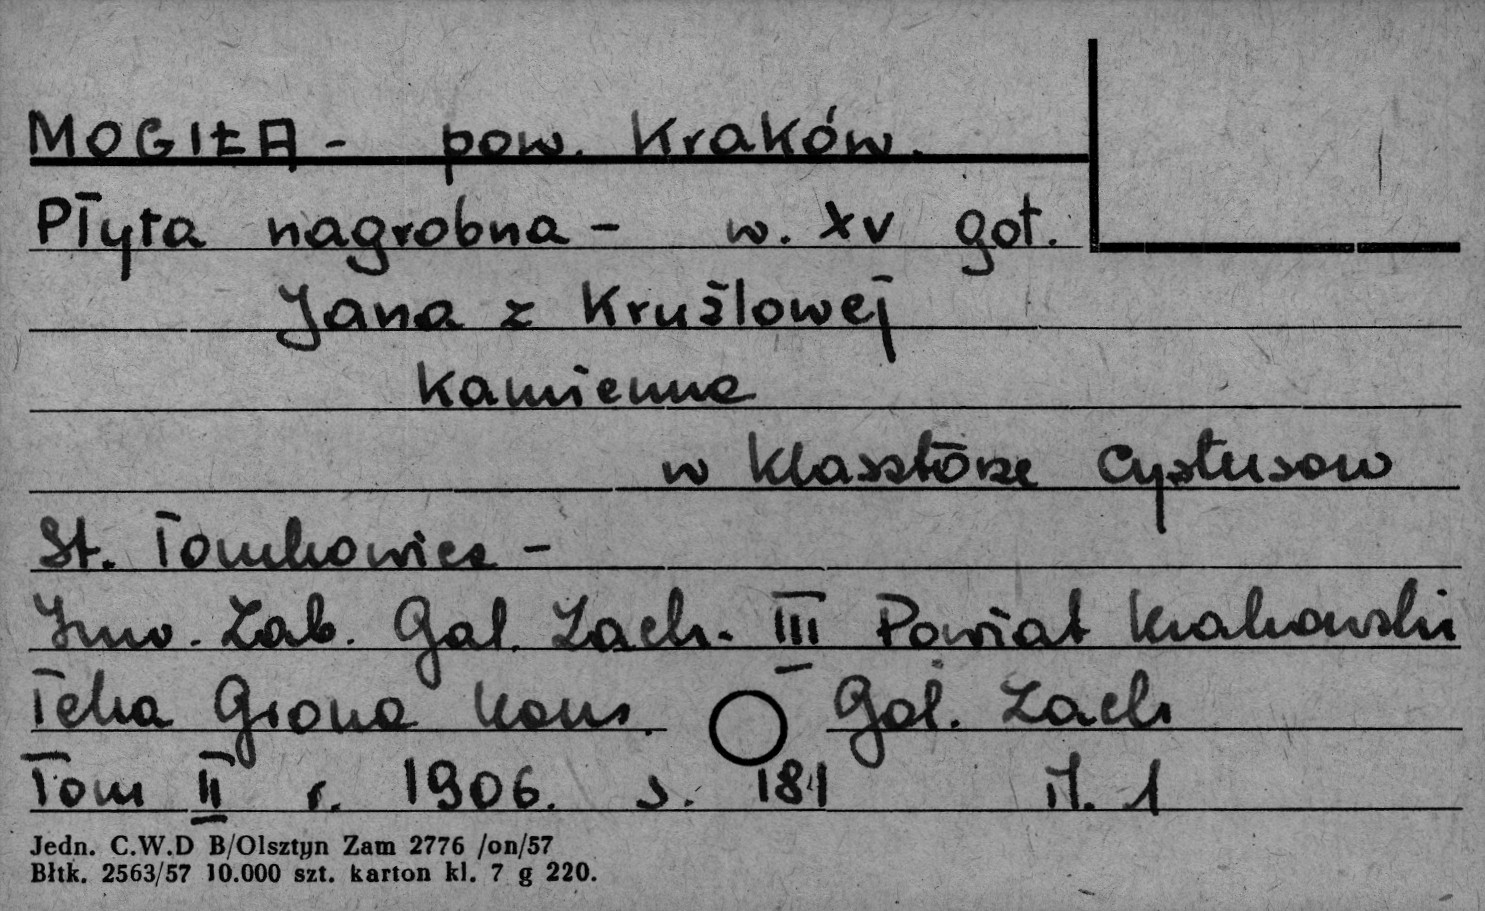 MOGIŁA - pow. Kraków.
Płyta nagrobna - w. XV got.
Jana z Krużlowej
Kamienna
w klasztorze Cystersow
St. Tomkowicz -
Inw. Zab. Gal. Zach. III Powiat Krakowski
Teka Grona Kons. Gal. Zach
Tom II r. 1906. s. 181 il. 1
Jedn. C.W.D B/Olsztyn Zam 2776 /on/57
Błtk. 2563/57 10.000 szt. karton kl. 7 g 220.